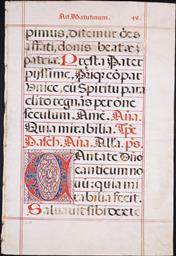 Ad Matutinum. 49.
pimus, Ditemur oẽs
astati, donis beatæ
patriæ. Præsta Pater
piissime, Patriq; cõpar
Vnice, cũ Spiritu para
clito regnas per õne
sæculum. Amẽ. Aña.
Quia mirabilia. Tpe
Pasch. Aña. Alla. ps.
Cantate Dño
canticum no
uũ: quia mi
rabilia fecit.
Saluauit sibi dexte